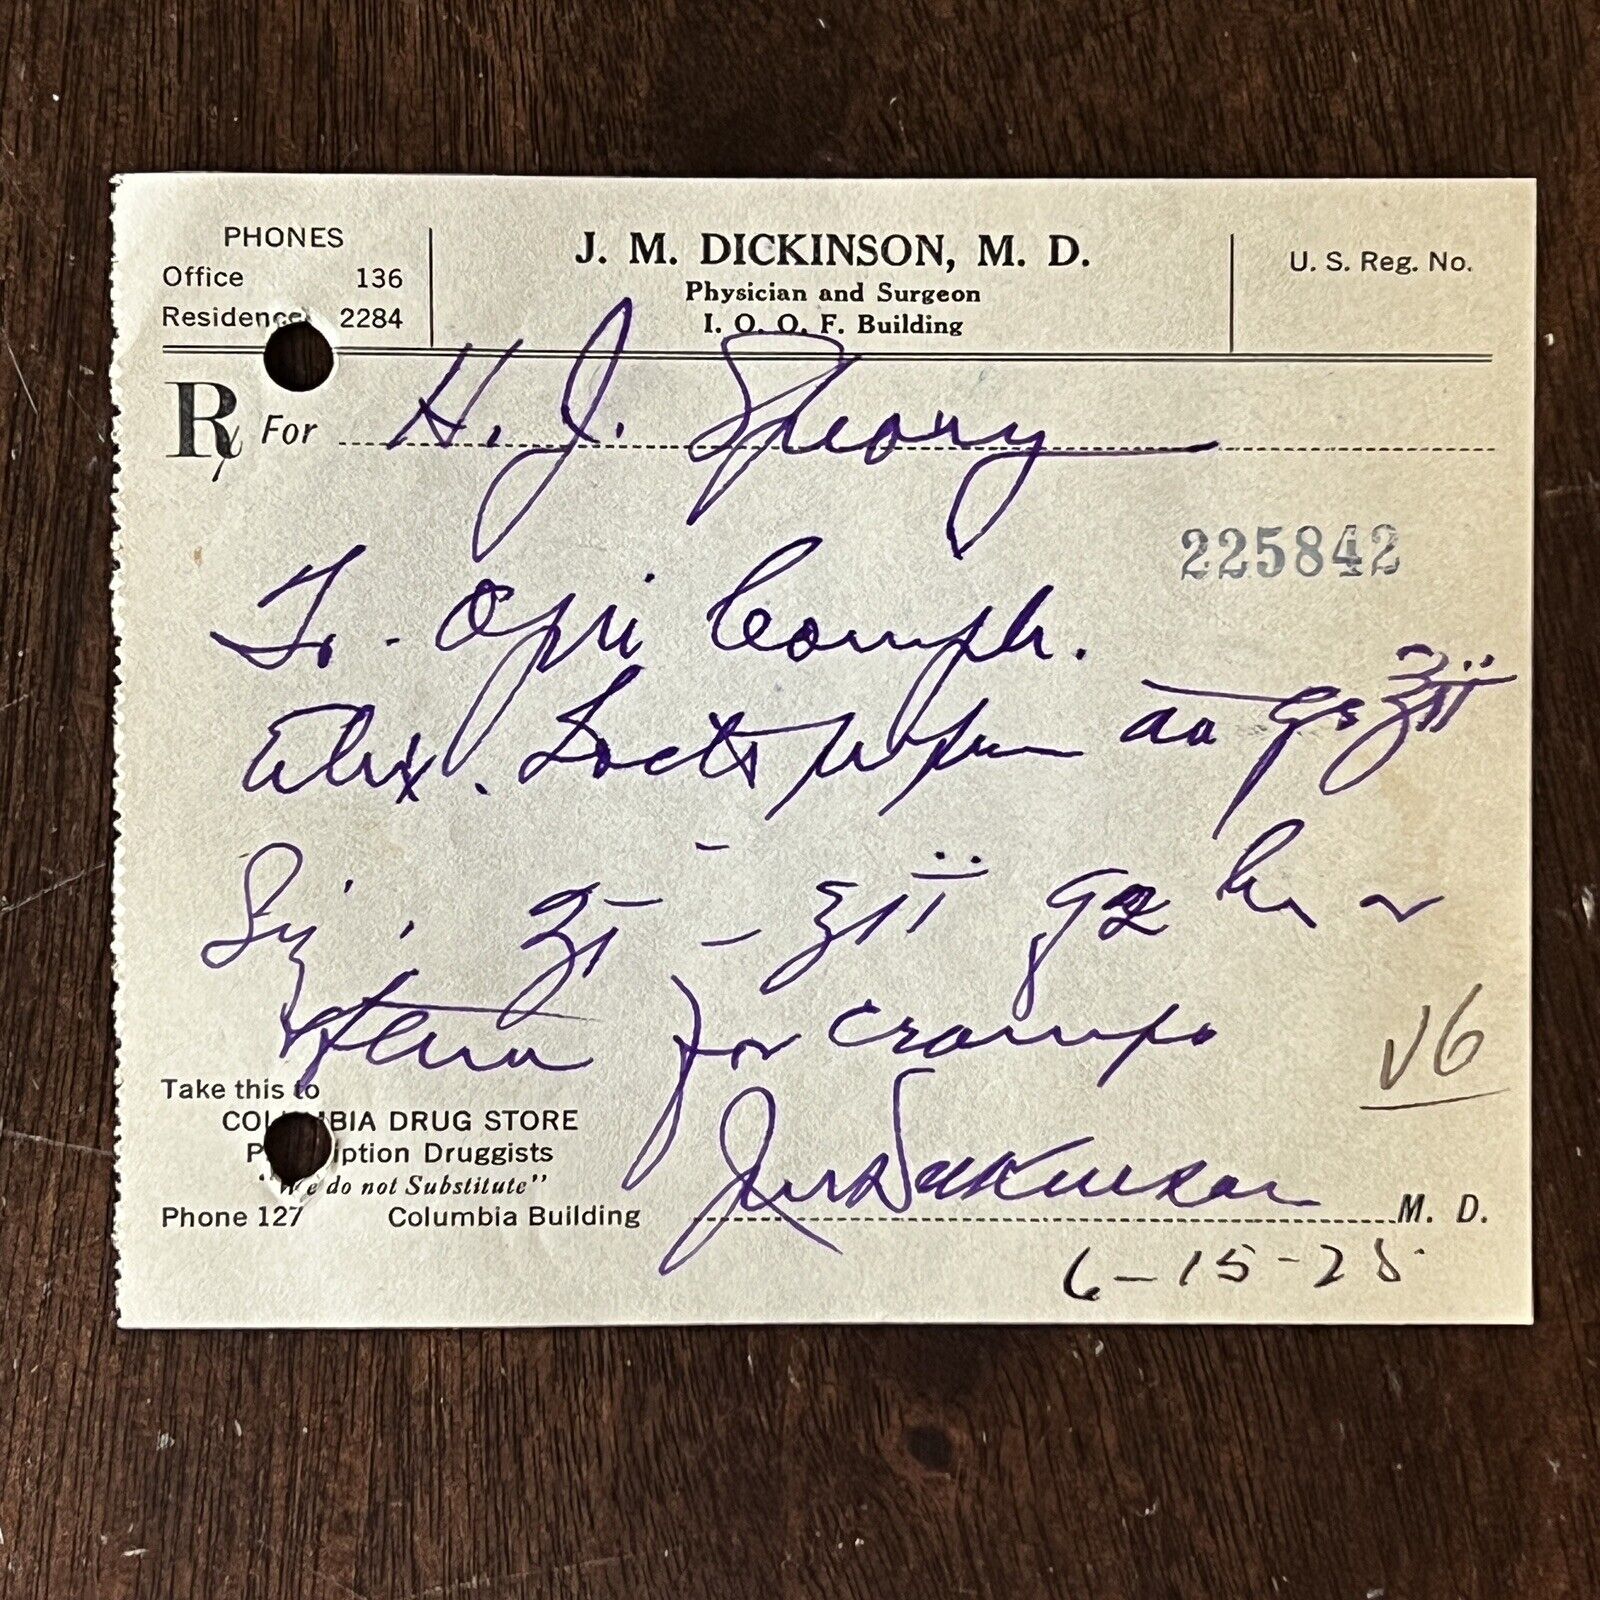 PHONES
Office 136
Residence 2284
J. M. DICKINSON, M. D.
Physician and Surgeon
I. O. O. F. Building
U. S. Reg. No.
Rx For H. J.
225842
Tr. Opii Camph.
Elix. Lacto aa ℥ii
Sig: ʒi - ʒii q2 h
for cramps
√6
Take this to
COLUMBIA DRUG STORE
Prescription Druggists
"We do not Substitute"
Phone 127 Columbia Building
J M Dickinson M. D.
6-15-28